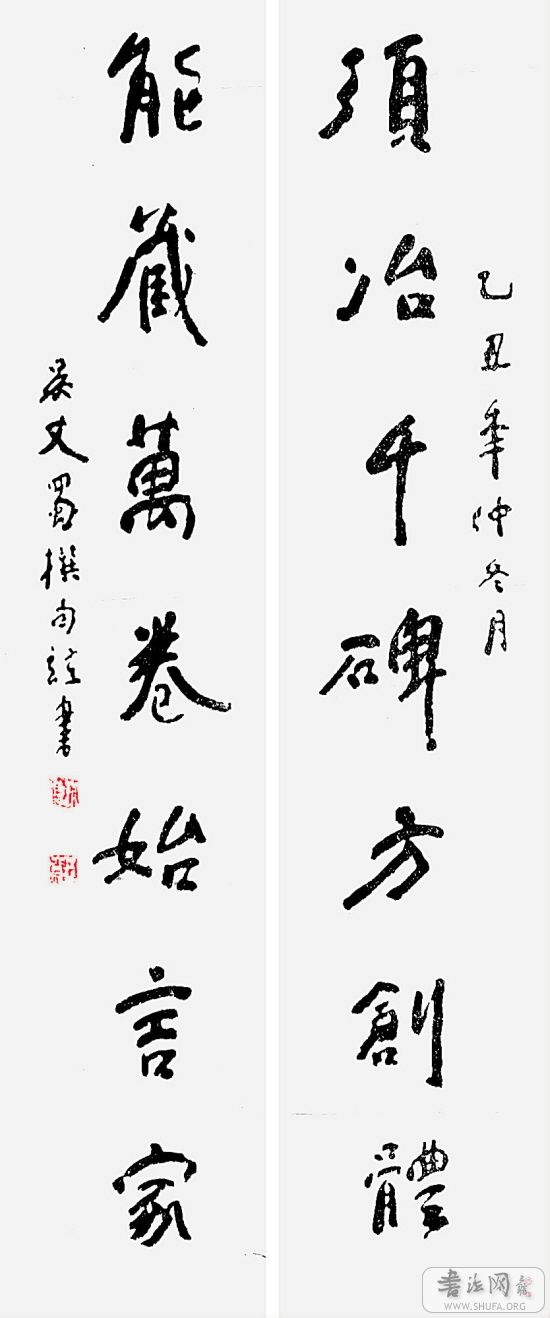 須冶千碑方創體
乙丑年仲冬月
能藏萬卷始言家
吳丈蜀撰句并書
書法网
WWW.SHUFA.ORG